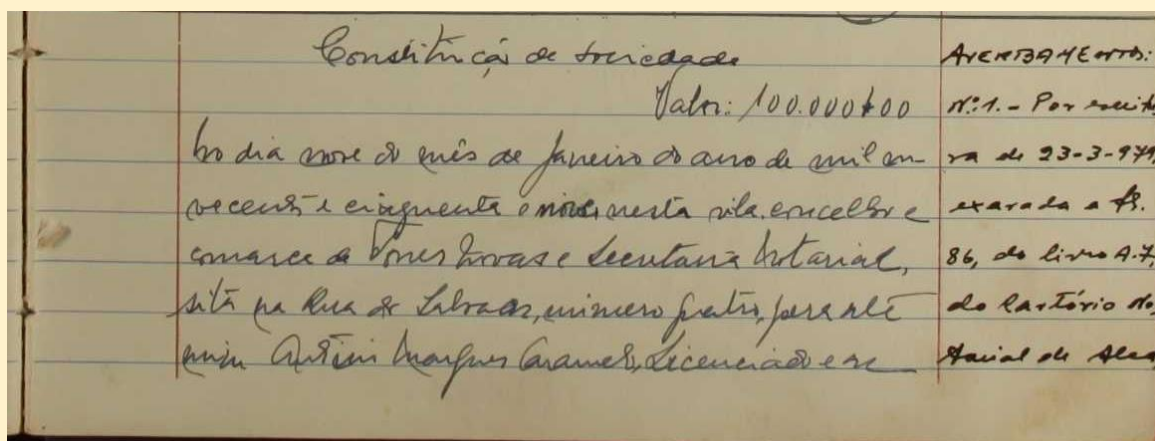 Constituição de sociedade
Valor: 100.000$00
No dia nove do mês de Janeiro do ano de mil no-
vecentos e cinquenta e nove, nesta vila, concelho e
comarca de Torres Novas e Secretaria Notarial,
sita na Rua do Salvador, número quatro, perante
mim António Marques Caramelo, Licenciado e
AVERBAMENTOS:
Nº 1. - Por escritu
ra de 23-3-979,
exarada a fls.
86, do livro A-7,
do Cartório No,
tarial de Alca,